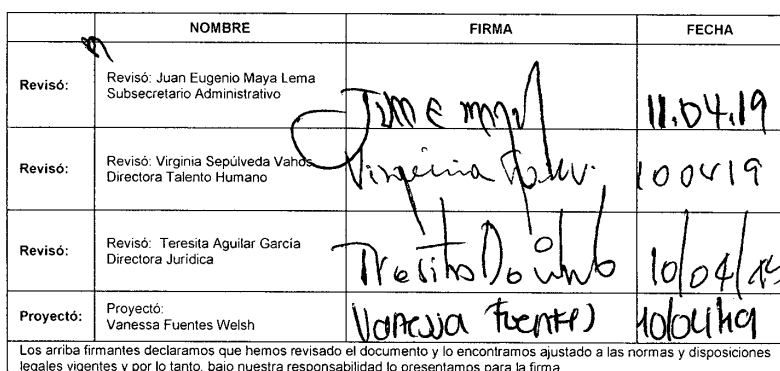 NOMBRE FIRMA FECHA
Revisó: Revisó: Juan Eugenio Maya Lema
Subsecretario Administrativo
11.04.19
Revisó: Revisó: Virginia Sepúlveda Vahos
Directora Talento Humano
Virginia
100419
Revisó: Revisó: Teresita Aguilar García
Directora Jurídica
10/04/19
Proyectó: Proyectó:
Vanessa Fuentes Welsh
Vanessa Fuentes 10/04/19
Los arriba firmantes declaramos que hemos revisado el documento y lo encontramos ajustado a las normas y disposiciones
legales vigentes y por lo tanto, bajo nuestra responsabilidad lo presentamos para la firma